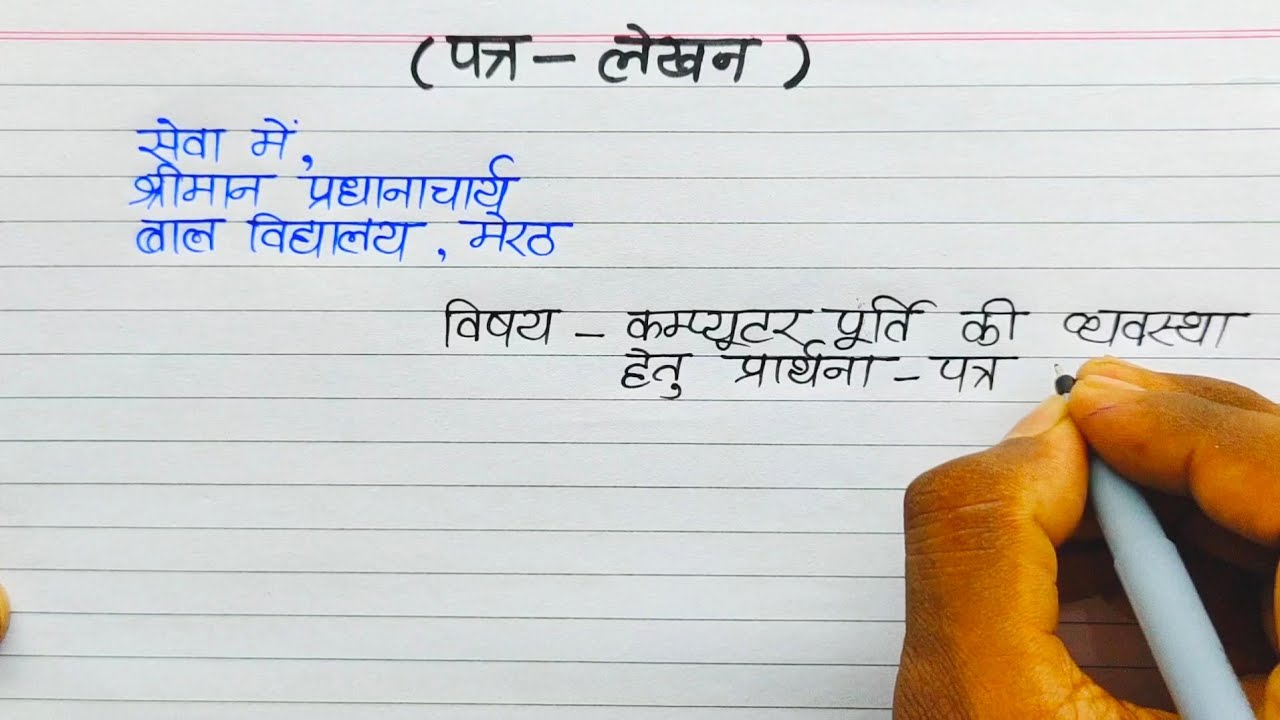 ( पत्र - लेखन )
सेवा में,
श्रीमान प्रधानाचार्य
बाल विद्यालय, मेरठ
विषय - कम्प्यूटर पूर्ति की व्यवस्था
हेतु प्रार्थना - पत्र